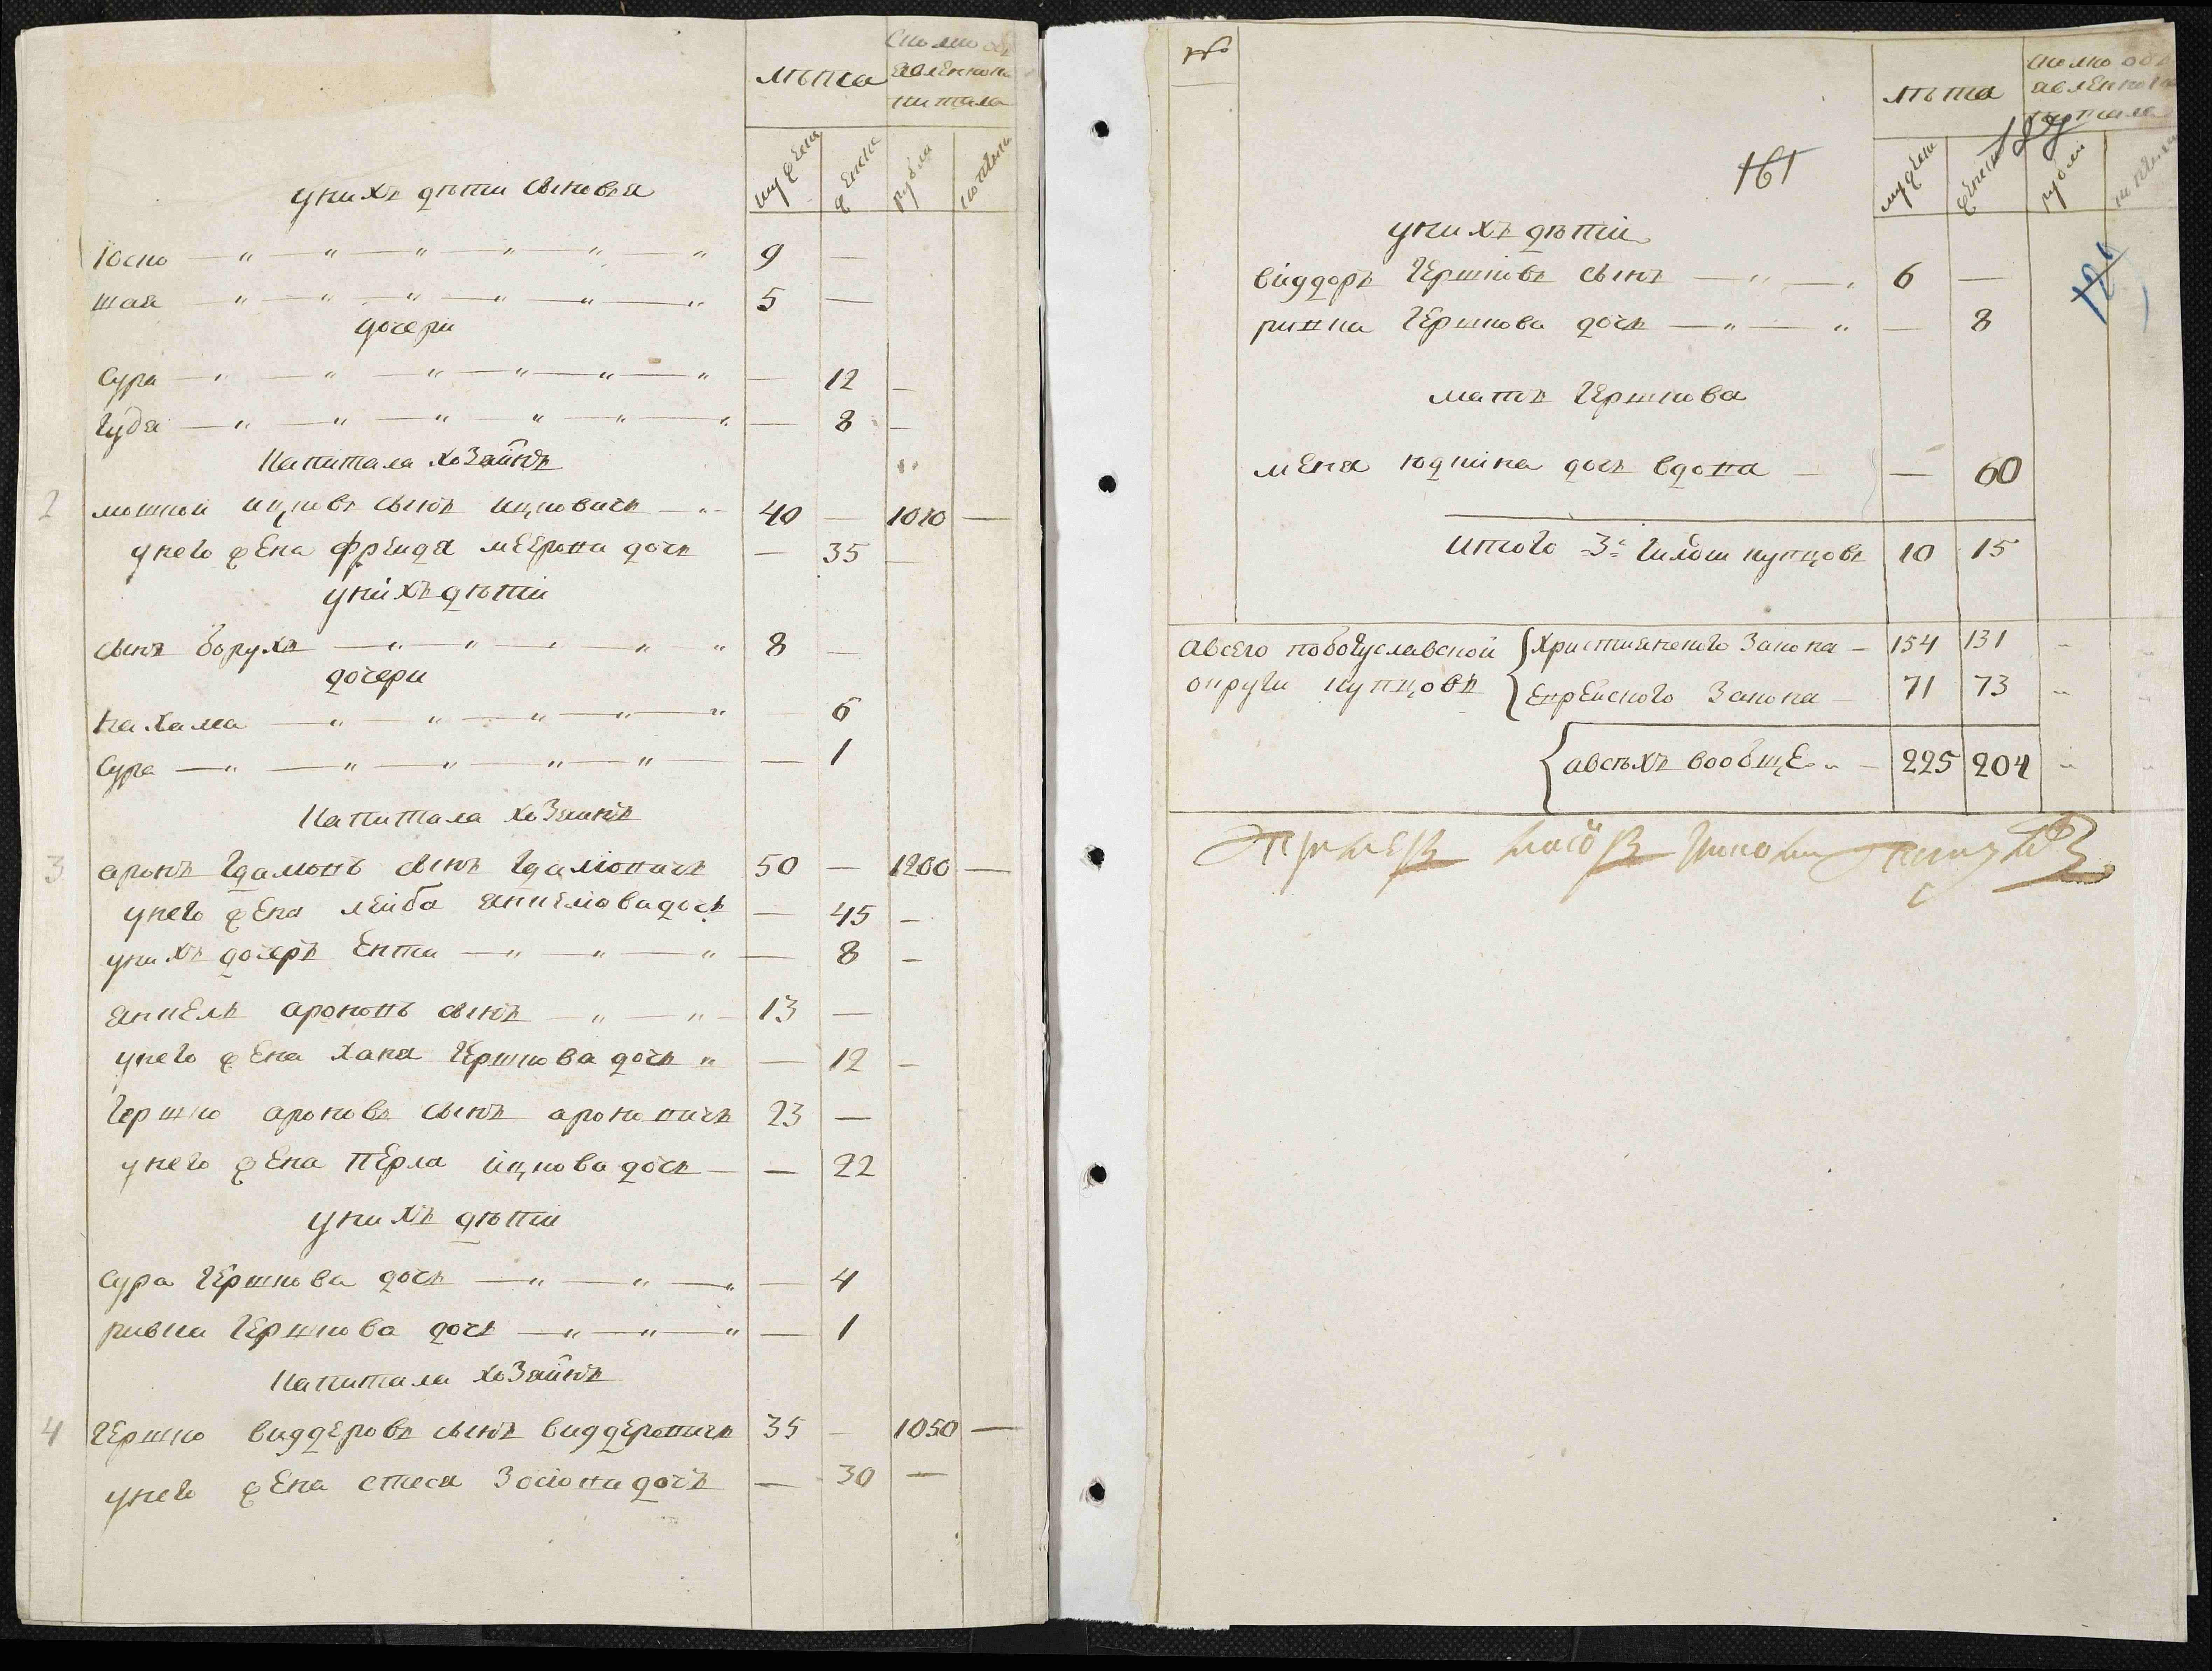 лѣта
Сколко объ
явленнова
питала
мужеска
женска
рубли
копѣики
у нихъ дѣти сыновья
Юско — „ — „ — „ — „ — „ — „ 9 —
шая — „ — „ — „ — „ — „ — „ 5 —
дочери
Сура — „ — „ — „ — „ — „ — „ — 12 —
Гудя — „ — „ — „ — „ — „ — „ — 8 —
Капитала хозяинъ
2 мошкои ицковъ сынъ ицковичъ — „ 40 — 1010 —
у него жена фреидя меерова дочь — 35 —
у нихъ дѣти
сынъ борухъ — „ — „ — „ — „ — „ 8 —
дочери
Нахама — „ — „ — „ — „ — „ — 6
Сура — „ — „ — „ — „ — „ — 1
Капитала хозяинъ
3 аронъ Гдаловъ сынъ Гдаліовичъ 50 — 1200 —
у него жена леиба янкеліова дочь — 45 —
у нихъ дочеръ Ента — „ — „ — „ — 8 —
янкель ароновъ сынъ — „ — „ — 13 —
у него жена хана Гершкова дочь „ — 12 —
Гершко ароновъ сынъ ароновичъ 23 —
у него жена Перла ицкова дочь — — 22
у нихъ дѣти
Сура Гершкова дочь — „ — „ — „ — 4
ривка Гершкова дочь — „ — „ — „ — 1
Капитала хозяинъ
4 Гершко виддеровъ сынъ виддеровичъ 35 — 1050 —
у него жена стеся Зосіова дочь — 30 —
№
лѣта
сколко объ
явленнова
питала
161
мужеска
женска
рубли
копѣики
у нихъ дѣти
виддоръ Гершковъ сынъ — „ — „ 6 —
ривка Гершкова дочь — „ — „ — 8
мать Гершкова
меня юдкина дочь вдова — — 60
Итого 3й Гилди купцовъ 10 15
а всего по богуславской округи купцовъ
Християнского Закона — 154 131 „ „
Еврейского Закона — 71 73 „ „
а всѣхъ вообще „ — 225 204 „ „